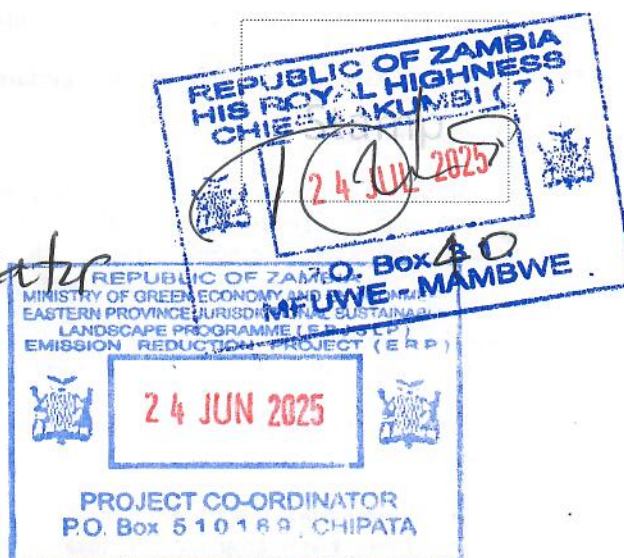 REPUBLIC OF ZAMBIA
HIS ROYAL HIGHNESS
CHIEF KAKUMBI (7)
Stamp
24 JUL 2025
P.O. Box 40
MFUWE - MAMBWE
REPUBLIC OF ZAMBIA
MINISTRY OF GREEN ECONOMY AND
EASTERN PROVINCE JURISDICTIONAL SUSTAINABLE
LANDSCAPE PROGRAMME (EPJSLP)
EMISSION REDUCTION PROJECT (ERP)
24 JUN 2025
PROJECT CO-ORDINATOR
P.O. Box 510169, CHIPATA